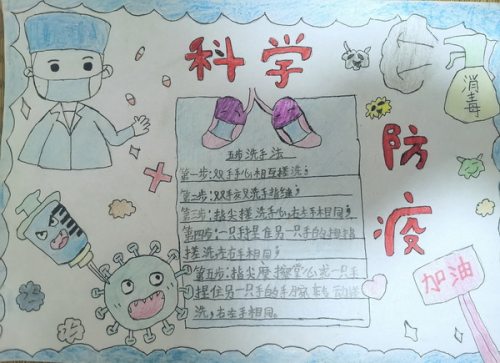 科学
防疫
消毒
五步洗手法
第一步:双手手心相互搓洗;
第二步:双手交叉洗手指缝;
第三步:指尖搓洗手心,左右手相同;
第四步:一只手捏住另一只手的拇指
搓洗,左右手相同;
第五步:指尖摩擦掌心或一只手
捏住另一只手的手腕转动搓
洗,左右手相同。
加油